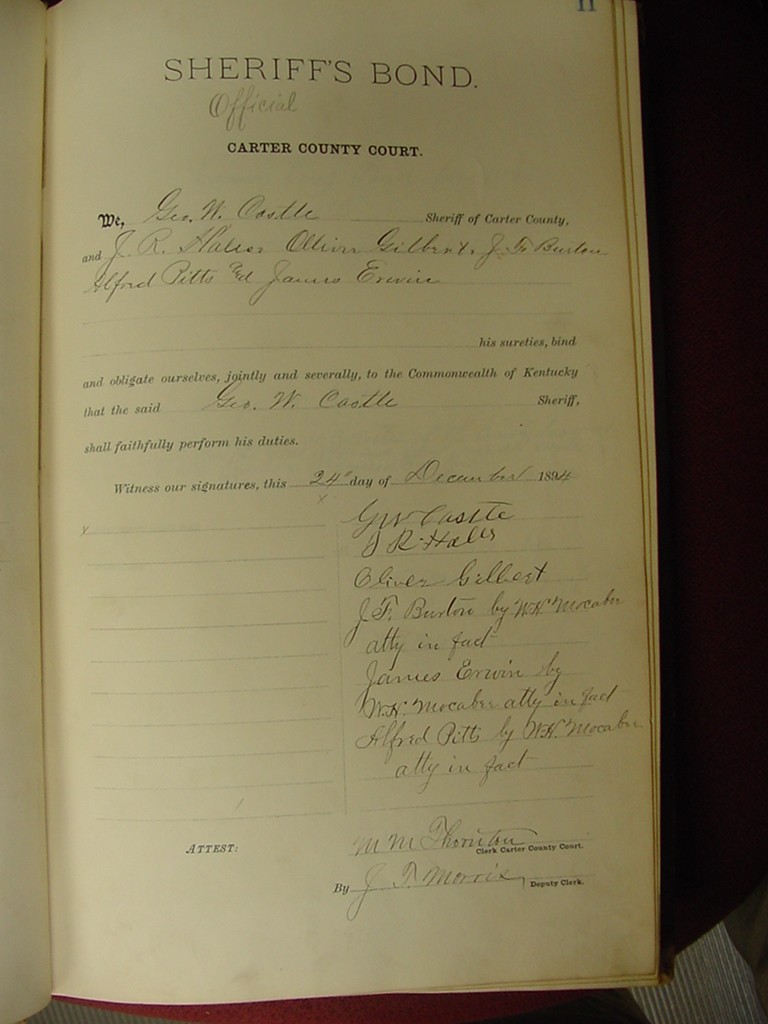 11
SHERIFF'S BOND.
Official
CARTER COUNTY COURT.
We, Geo. W. Castle Sheriff of Carter County,
and J. R. Hales Ollivir Gilbert, J. F. Burton
Alford Pitts and James Erwin
his sureties, bind
and obligate ourselves, jointly and severally, to the Commonwealth of Kentucky
that the said Geo. W. Castle Sheriff,
shall faithfully perform his duties.
Witness our signatures, this 24" day of December 1894
x
x
GW Castle
J R Hales
Oliver Gilbert
J. F. Burton by W.H. Mocaber
atty in fact
James Erwin by
W.H. Mocaber atty in fact
Alfred Pitts by W.H. Mocaber
atty in fact
ATTEST: M M Thornton Clerk Carter County Court.
By J. T. Morris, Deputy Clerk.